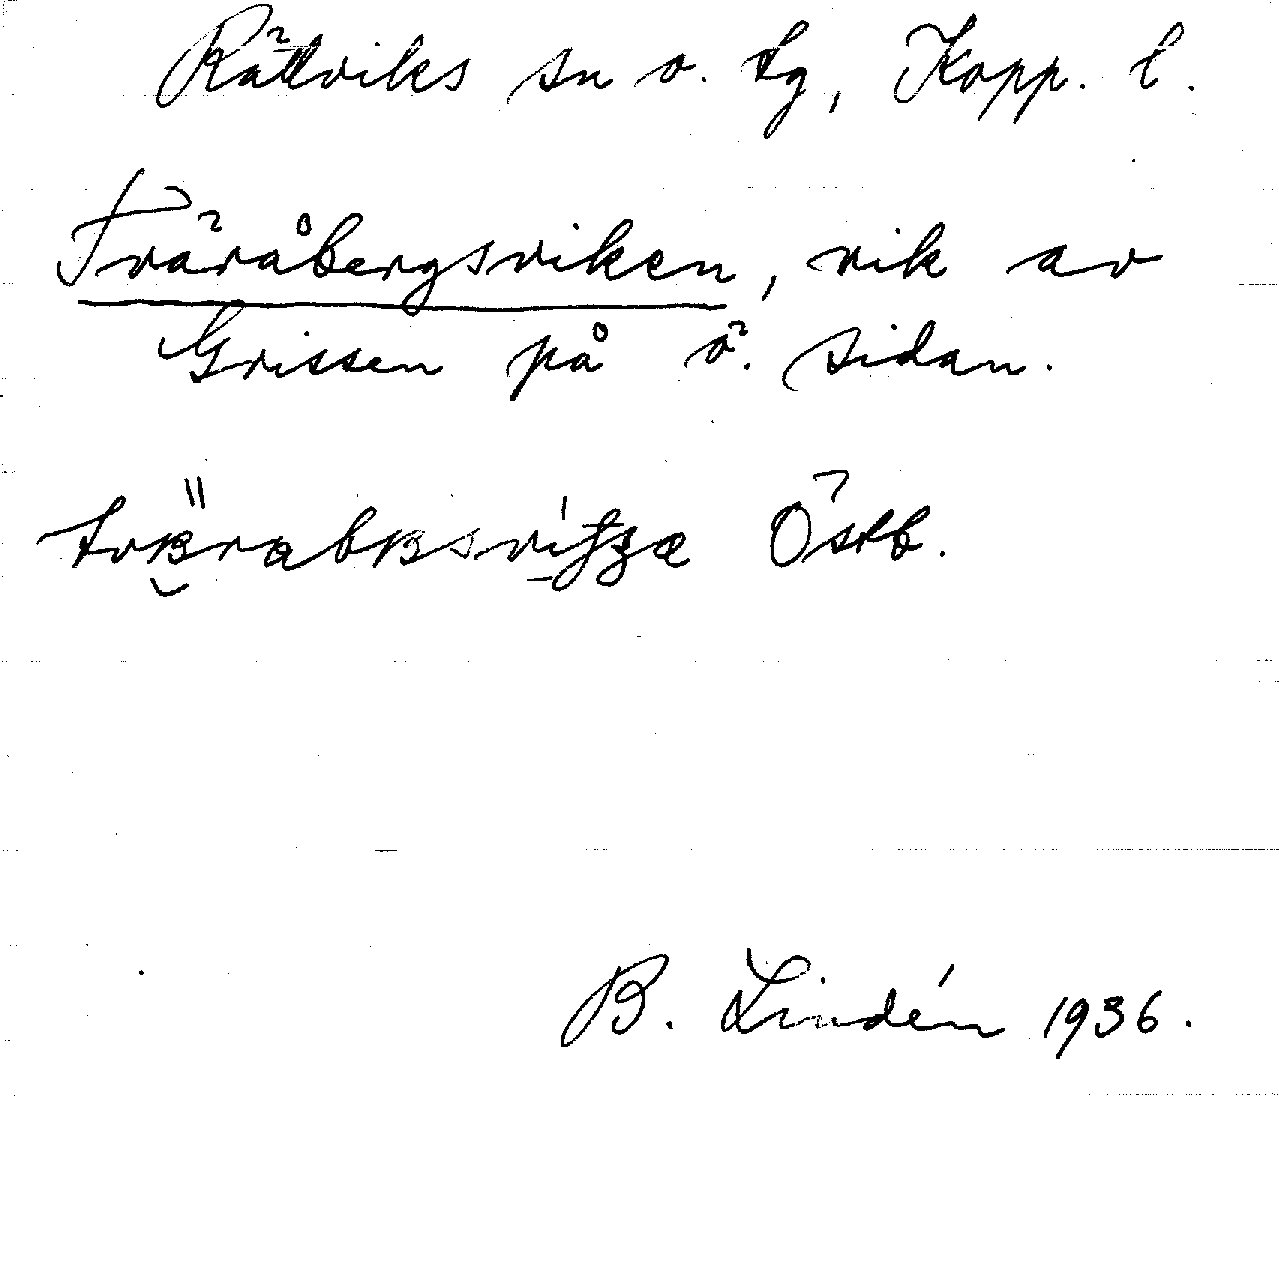 Rättviks sn o. tg, Kopp. l.
Tväråbergsviken, vik av
Grissen på ö. sidan.
Östb.
B. Lindén 1936.